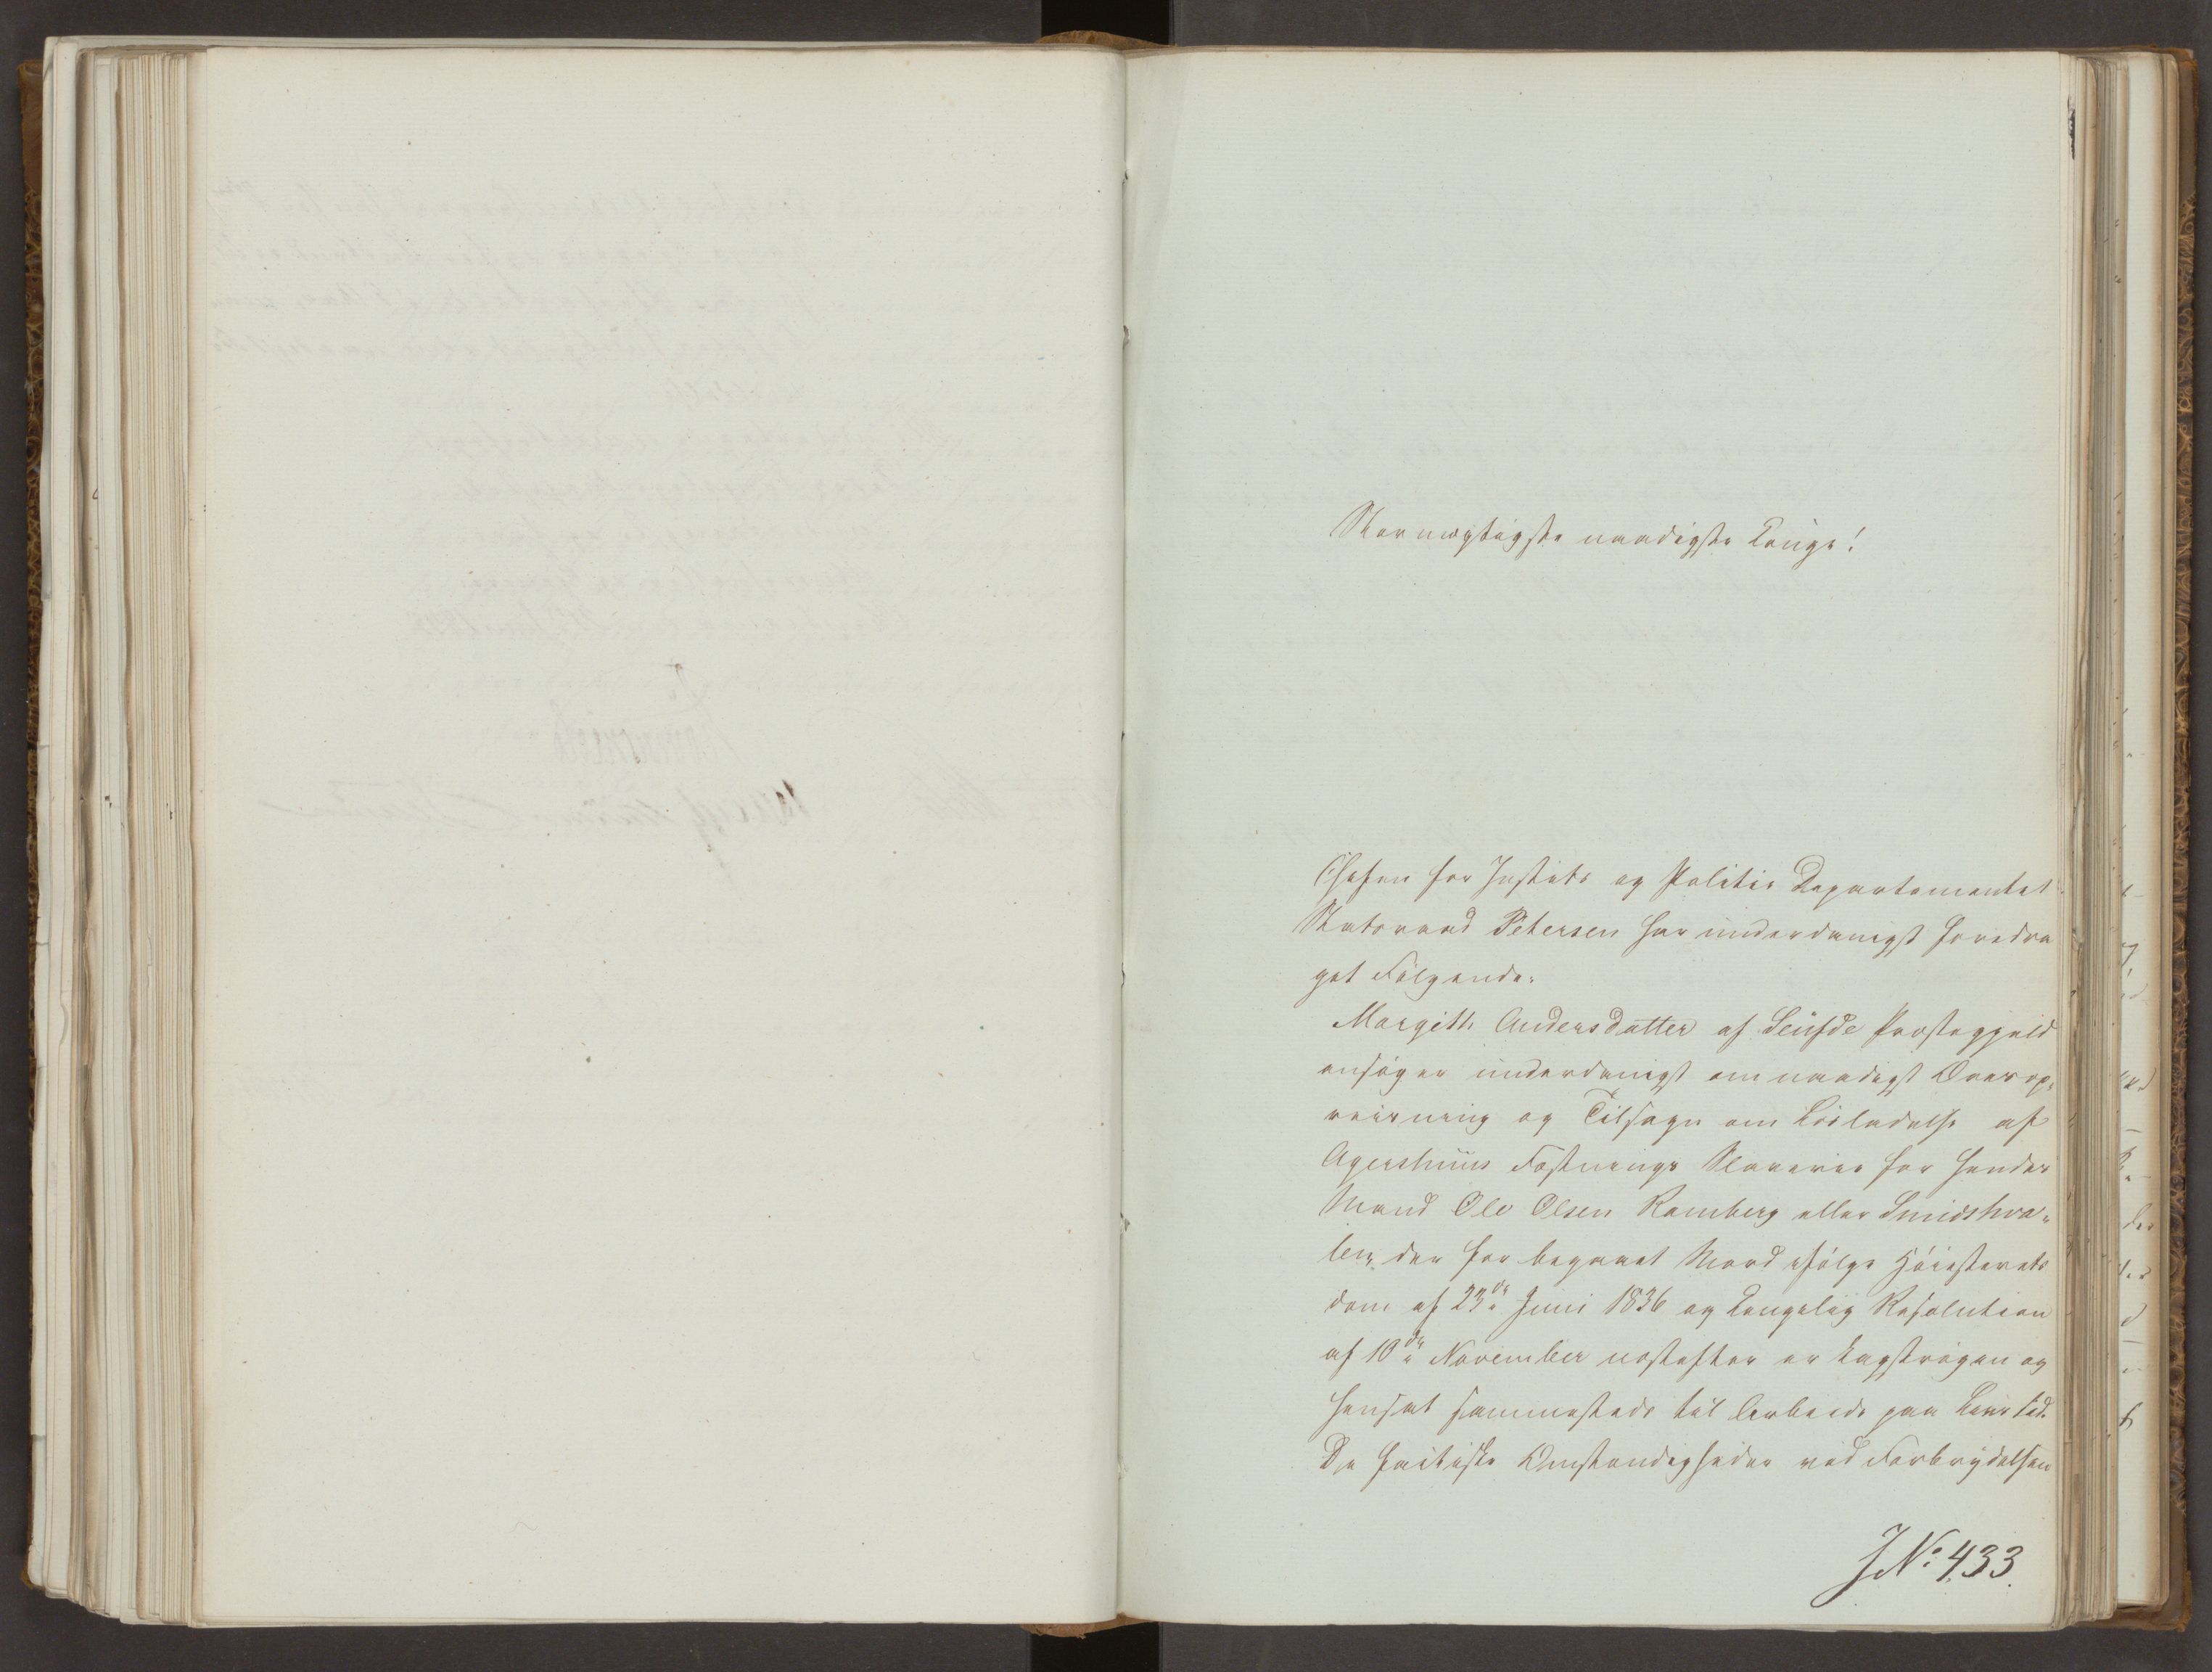 Stormægtigste naadigste Konge!
Chefen for Justits og Politie Departementet
Statsraad Petersen har underdanigst foredra
get Følgende:
Margith Andersdatter af Præstegjeld
ansøger underdanigst om naadigst
og Tilsagn om Løsladelse af
Agershuus Fæstnings Slaverie for hendes
Mand Ole Olsen Ramberg eller Smidshva-
len, der for begaaet Mord ifølge Høiesterets
dom af 23de Juni 1836 og Kongelig Resolution
af 10de November næstefter er kagstrøgen og
hensat sammesteds til Arbeide paa Livstid.
De factiske Omstændigheder ved Forbrydelsen
JNo: 433.